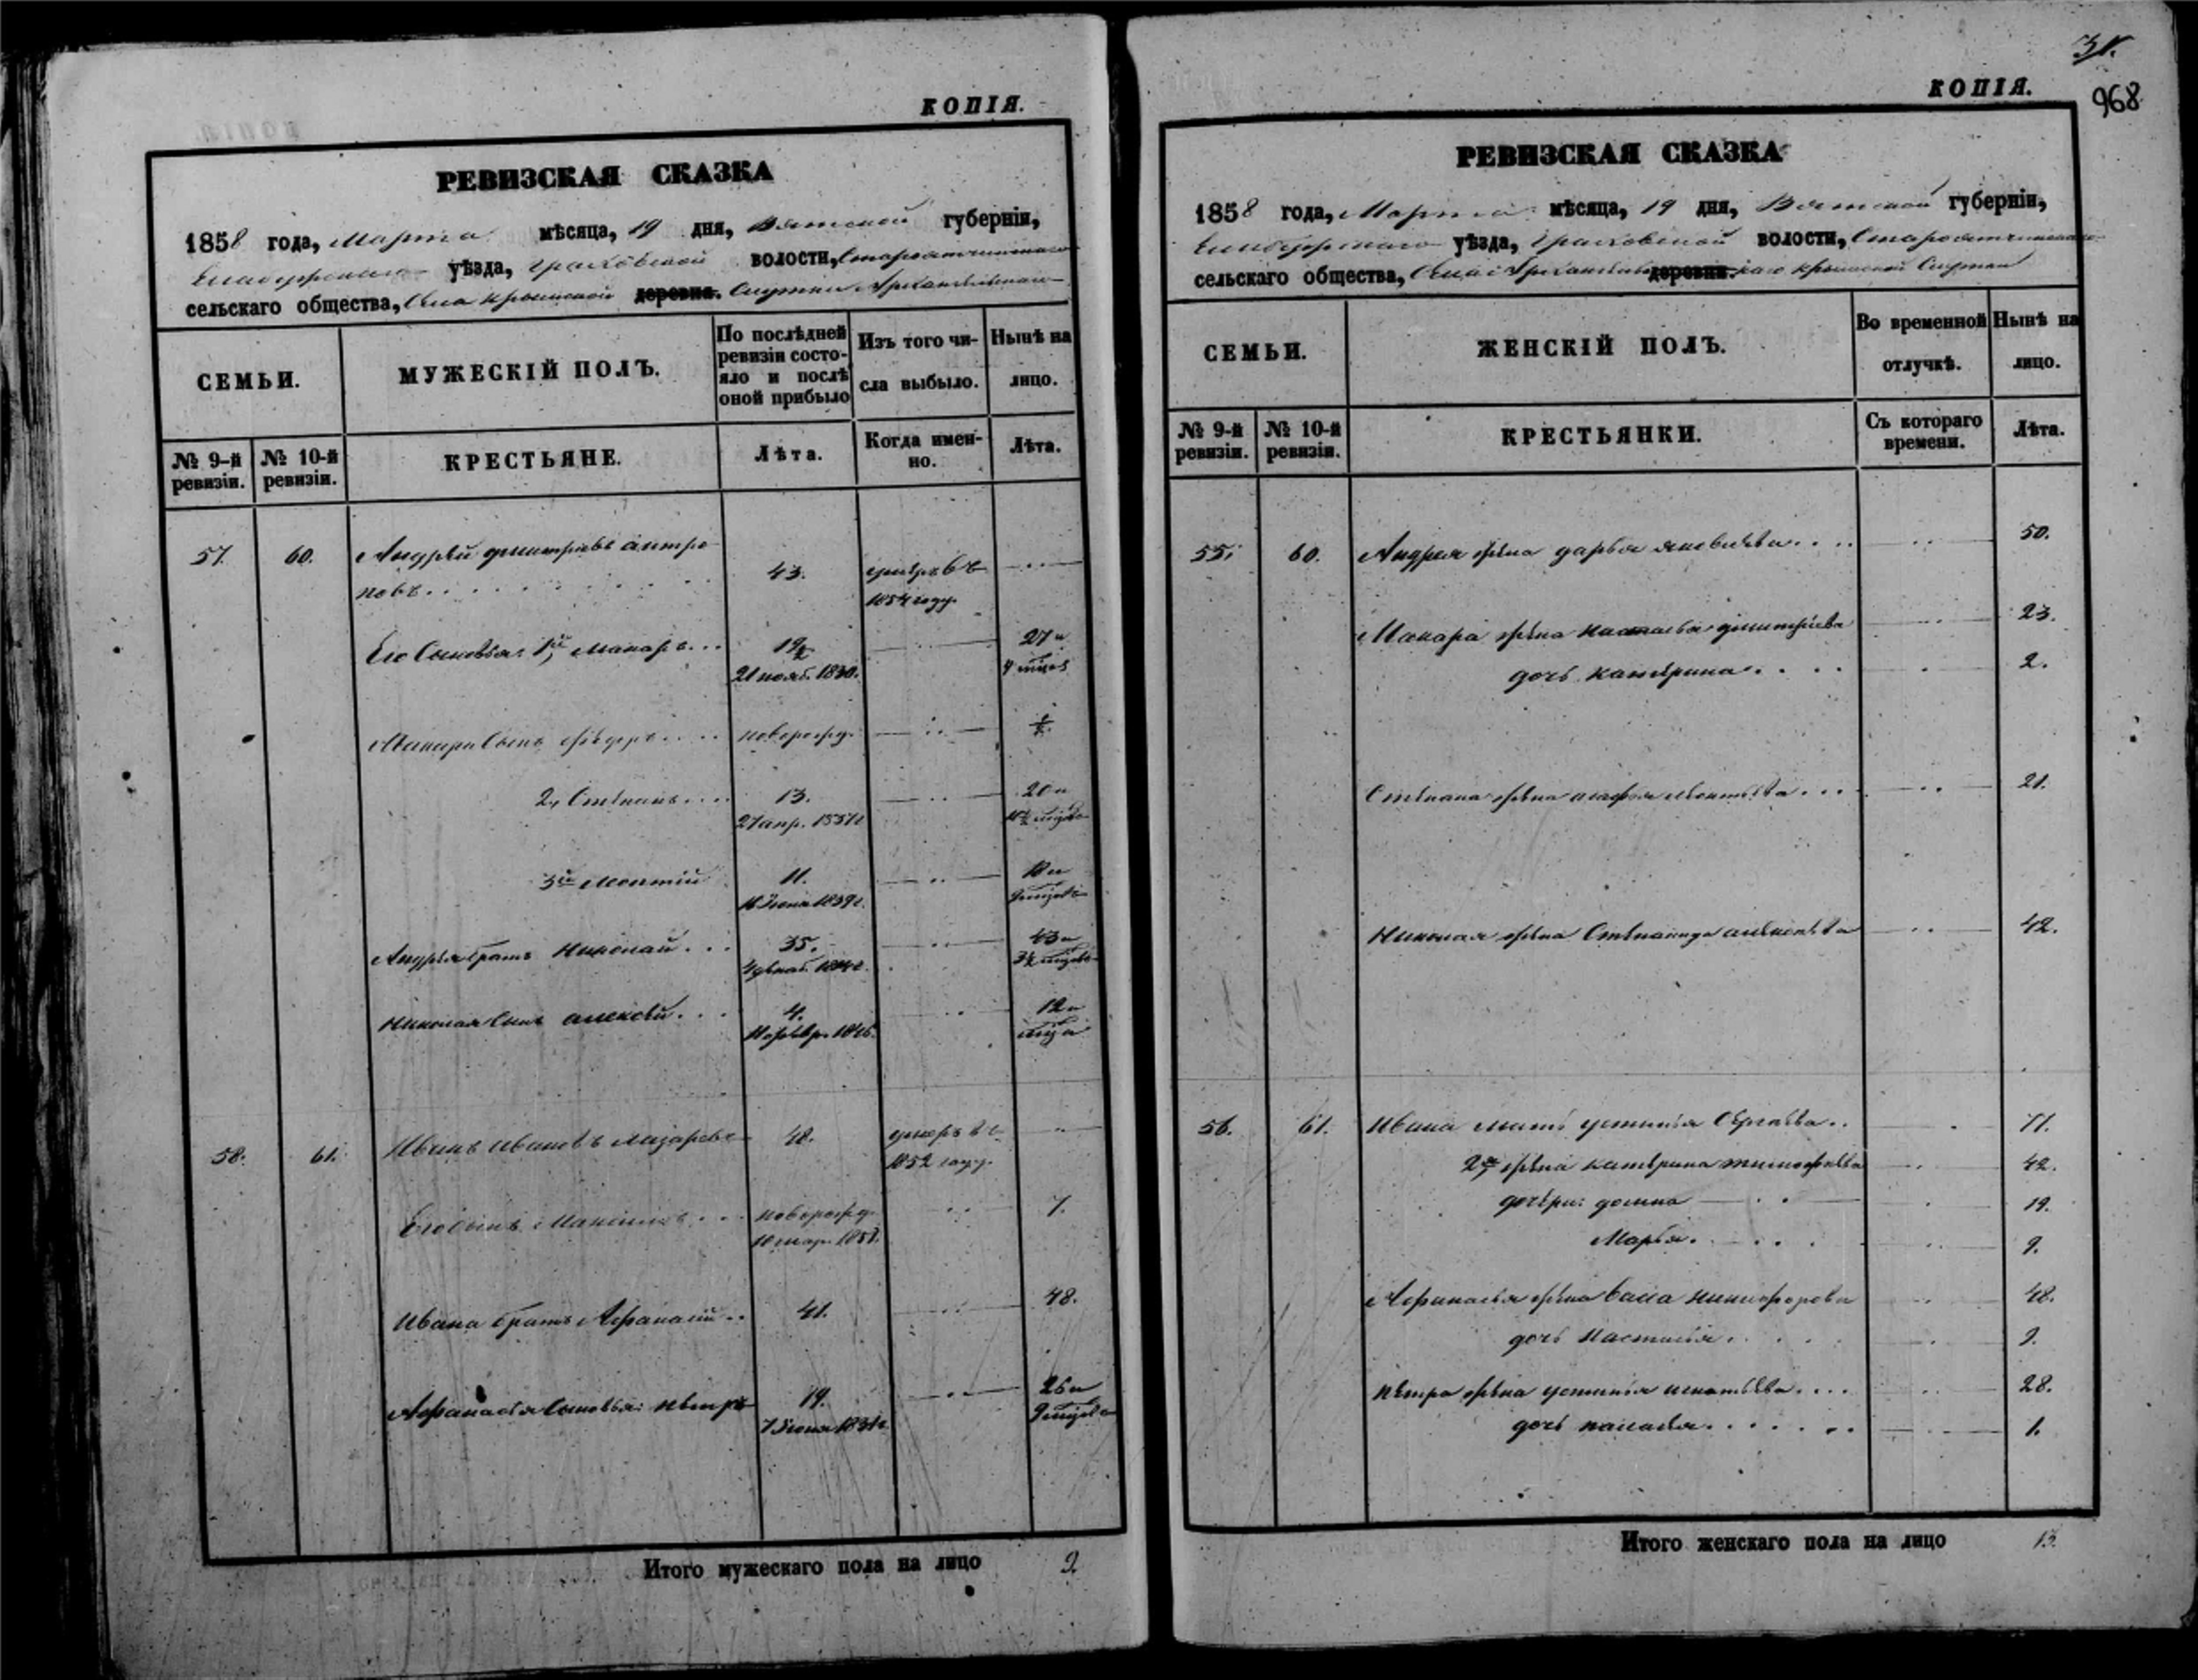 КОПІЯ.
РЕВИЗСКАЯ СКАЗКА
1858 года, Марта мѣсяца, 19 дня, Вятской губерніи,
Елабужскаго уѣзда, Граховской волости,
сельскаго общества, Села Крымской деревни. Слутки Архангельскаго
СЕМЬИ.
МУЖЕСКІЙ ПОЛЪ.
По послѣдней ревизіи состо-
яло и послѣ
оной прибыло
Изъ того чи-
сла выбыло.
Нынѣ на
лицо.
№ 9-й ревизіи.
№ 10-й ревизіи.
КРЕСТЬЯНЕ.
Лѣта.
Когда имен-
но.
Лѣта.
57. 60. Андрей Дмитріевъ Антро-
повъ 43. умеръ въ
1854 году.
Его Сыновья: 1й Макаръ 19½ 27 и
21 нояб. 1830. 4 мѣся
Макара Сынъ Ѳедоръ новорожд. ½
2й Степанъ 13. 20 и
27 апр. 1837 г. 10½ мѣсяц
3й Леонтій 11. 18 и
16 Іюня 1839 г. 9 мѣсяц
Андрея братъ Николай 35. 43 и
4 декаб. 1814 г. 3½ мѣсяц
Николая Сынъ Алексѣй 4. 12 и
11 февр. 1846. мѣсяц
58. 61. Иванъ Ивановъ Лазаревъ 48. умеръ въ
1852 году.
Его Сынъ Максимъ новорожд. 7.
10 мар. 1851.
Ивана братъ Афанасій 41. 48.
Афанасья Сыновья: Петръ 19. 26 и
7 Іюня 1831 г. 9 мѣсяц
Итого мужескаго пола на лицо 9.
31.
968
КОПІЯ.
РЕВИЗСКАЯ СКАЗКА
1858 года, Марта мѣсяца, 19 дня, Вятской губерніи,
Елабужскаго уѣзда, Граховской волости,
сельскаго общества, Села Архангельс деревни. каго Крымской Слутки
СЕМЬИ.
ЖЕНСКІЙ ПОЛЪ.
Во временной
отлучкѣ.
Нынѣ на
лицо.
№ 9-й ревизіи.
№ 10-й ревизіи.
КРЕСТЬЯНКИ.
Съ котораго
времени.
Лѣта.
55. 60. Андрея жена Дарья Яковлева 50.
Макара жена Настасья Дмитріева 23.
дочь Катерина 2.
Степана жена Агафья Леонтьева 21.
Николая жена Степанида Алексѣева 42.
56. 61. Ивана мать Устинья Сергѣева 71.
2я жена Катерина Тимофѣева 42.
дочери: Домна 19.
Марья 9.
Афанасья жена Васса Никифорова 48.
дочь Настасья 9.
Петра жена Устинья Игнатьева 28.
дочь Паладья 1.
Итого женскаго пола на лицо 13.